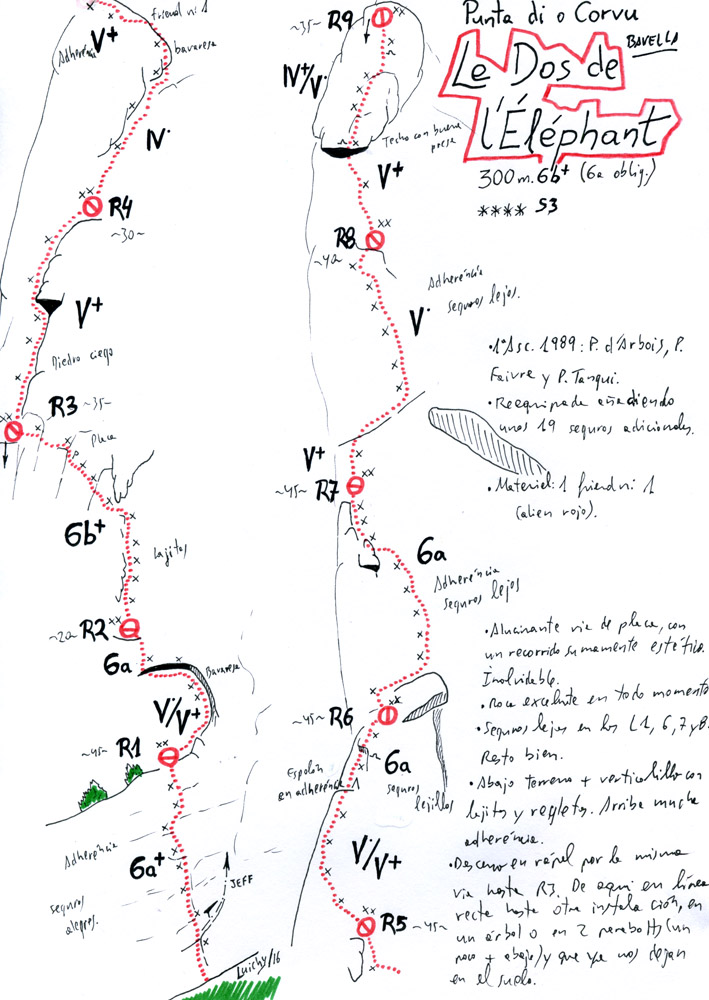 Punta di o Corvu
BAVELLA
Le Dos de
l'Éléphant
300 m. 6b+ (6a oblig.)
**** S3
•1ª Asc. 1989: P. d'Arbois, P.
Faivre y P. Tanqui.
•Reequipada añadiendo
unos 19 seguros adicionales.
•Material: 1 friend nº 1
(alien rojo).
•Alucinante vía de placa, con
un recorrido sumamente estético.
Inolvidable.
•Roca excelente en todo momento
•Seguros lejos en los L1, 6, 7 y 8.
Resto bien.
•Abajo terreno + verticalillo con
lajitas y regletas. Arriba mucha
adherencia.
•Descenso en rápel por la misma
vía hasta R3. De aquí en línea
recta hasta otra instalación, en
un árbol o en 2 parabolts (un
poco + abajo) y que ya nos dejan
en el suelo.
friend nº 1
V+
Adherencia
bavaresa
IVº
R4
~30~
V+
Diedro ciego
R3 ~35~
Placa
6b+
lajitas
~20~ R2
6a
Bavaresa
Vº/V+
~45~ R1
Adherencia
6a+
seguros
alegres.
JEFF
Luichy/16
~35~ R9
IV+/Vº
Techo con buena
presa
V+
R8
~40~
Adherencia
seguros lejos.
Vº
V+
~45~ R7
6a
Adherencia
seguros lejos
~45~ R6
6a
Espolón
en adherencia
seguros
lejillos
Vº/V+
R5 ~45~